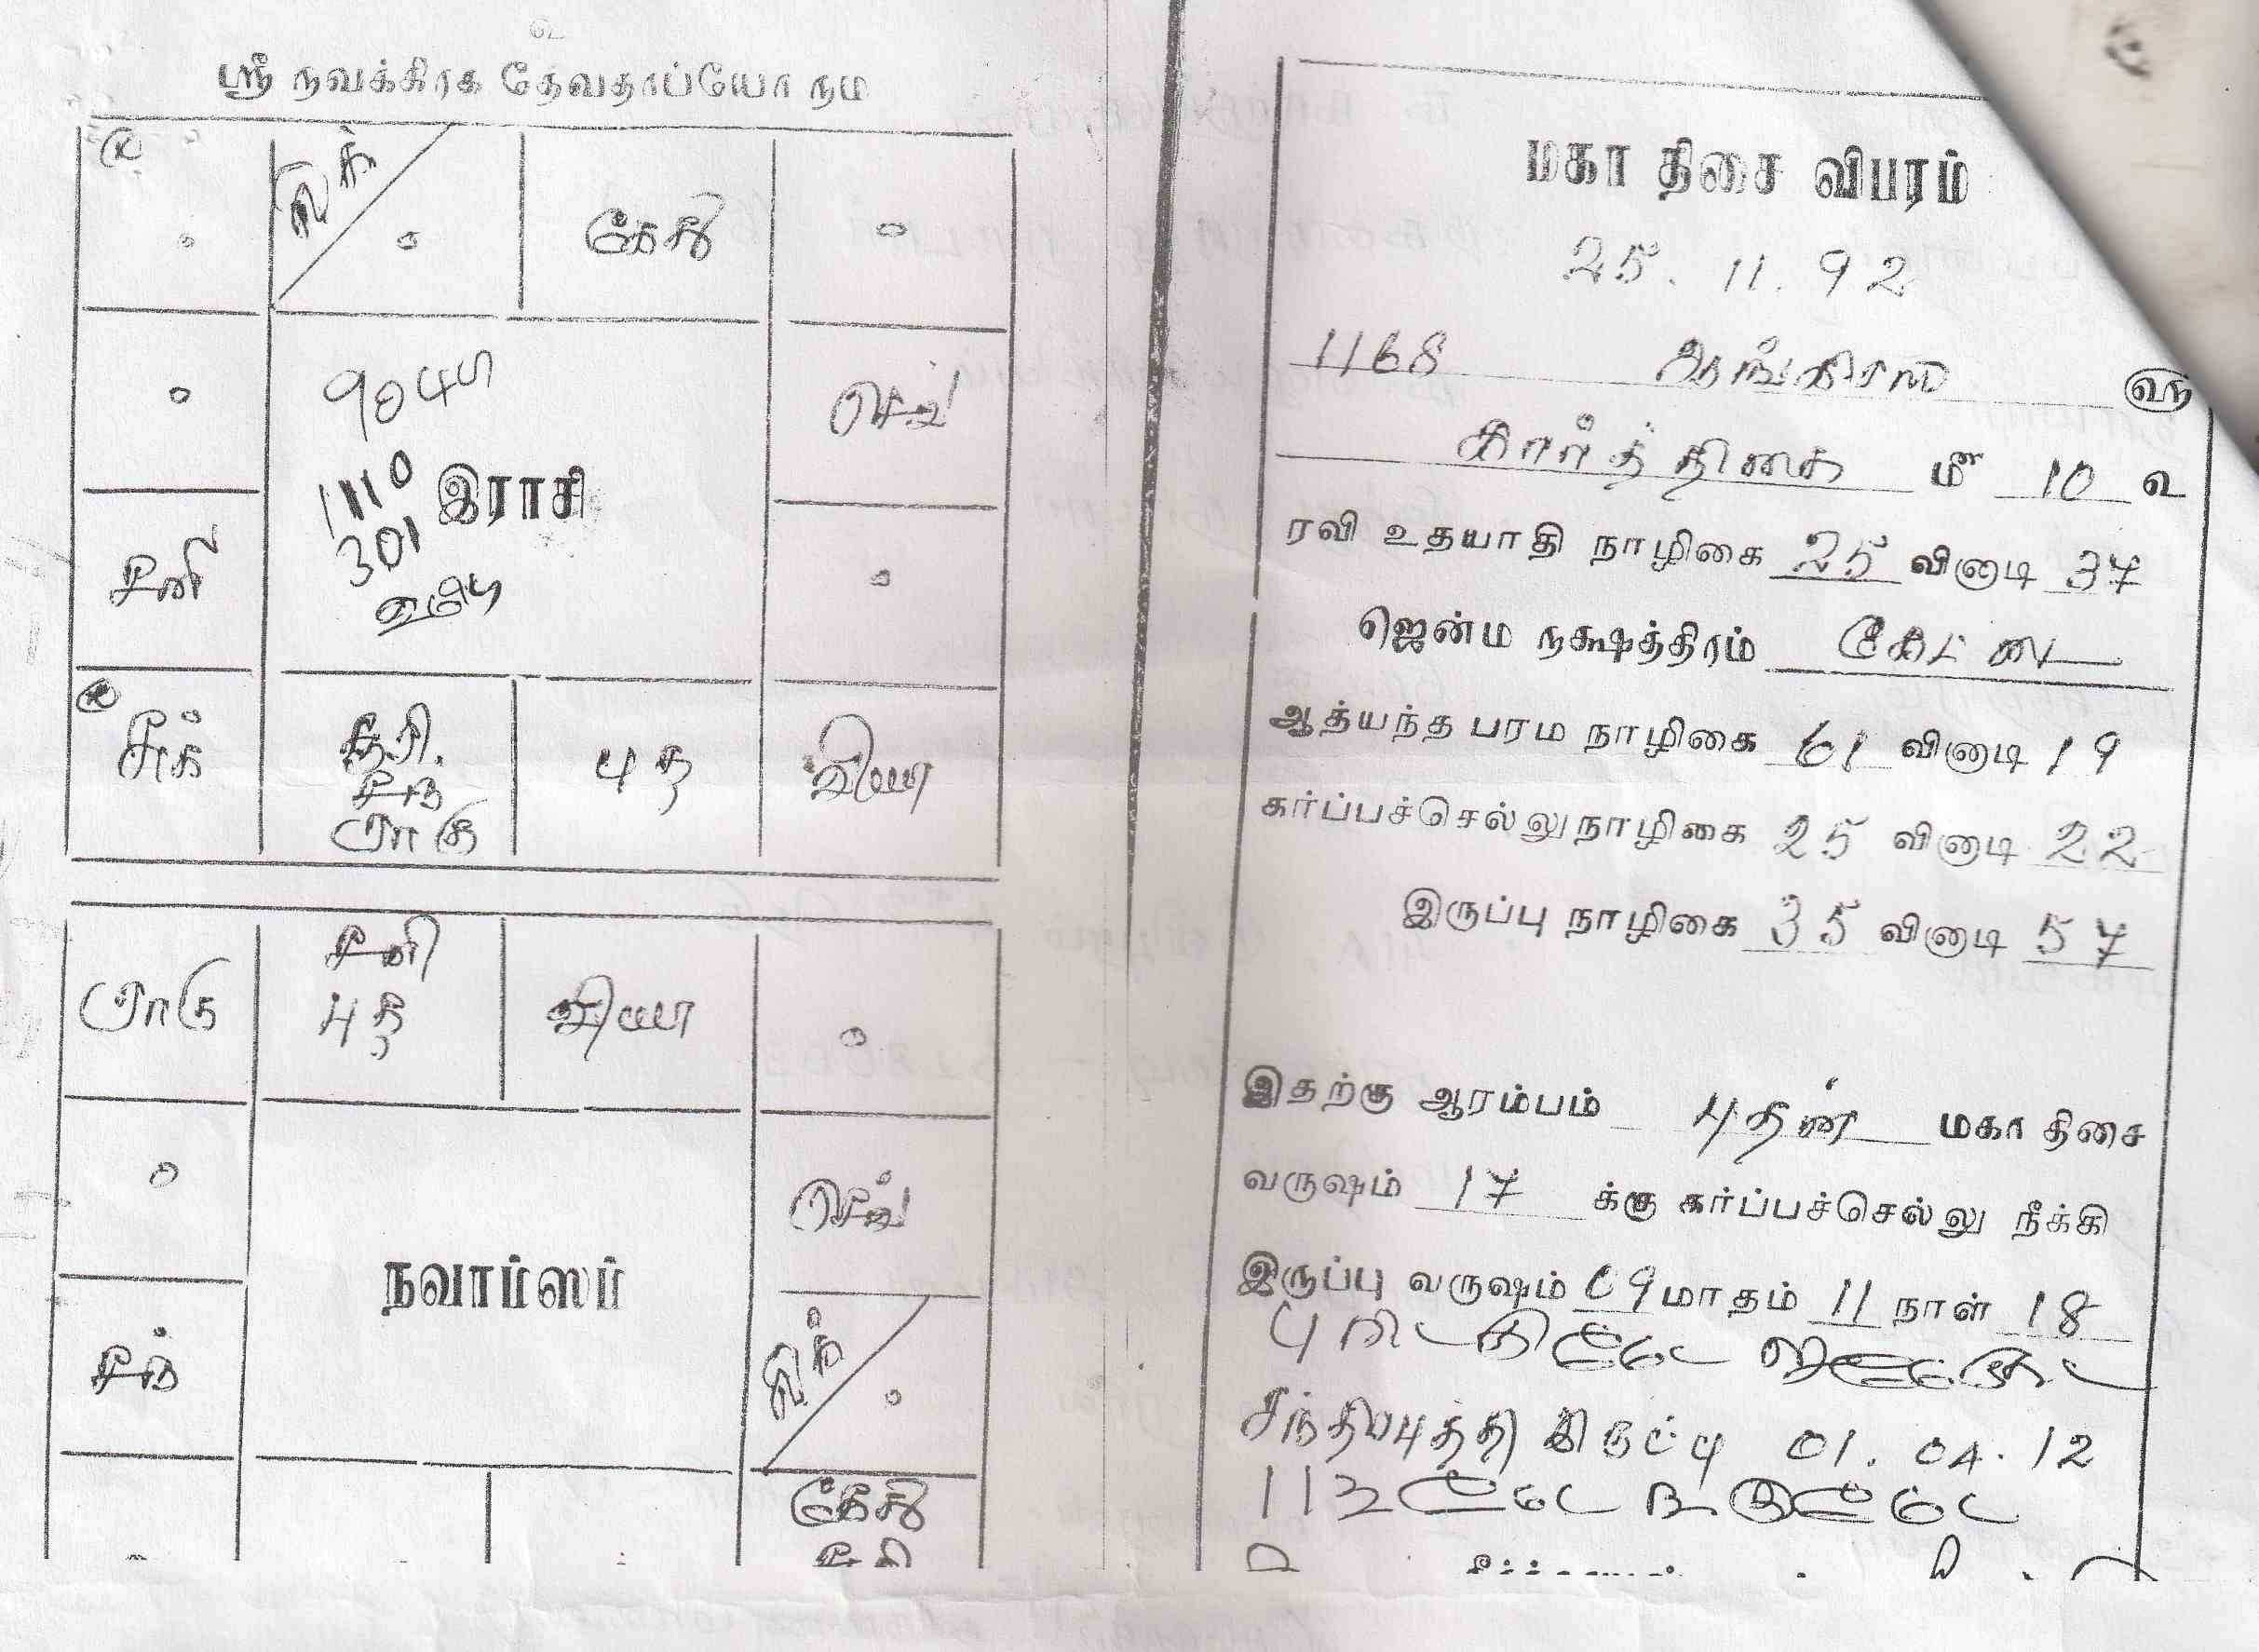 ஸ்ரீ நவக்கிரக தேவதாப்யோ நம
லக்
கேது
செவ்
சனி
இராசி
1110
301
சுக்
சூரி.
சந்
ராகு
புத
வியா
ராகு
சனி
புத
வியா
செவ்
நவாம்ஸம்
லக்
சந்
கேது
மகா திசை விபரம்
25. 11. 92
1168 ஆங்கிரஸ ௵
கார்த்திகை ௴ 10 உ
ரவி உதயாதி நாழிகை 25 வினாடி 37
ஜென்ம நக்ஷத்திரம் கேட்டை
ஆத்யந்த பரம நாழிகை 61 வினாடி 19
கர்ப்பச்செல்லுநாழிகை 25 வினாடி 22
இருப்பு நாழிகை 35 வினாடி 57
இதற்கு ஆரம்பம் புதன் மகா திசை
வருஷம் 17 க்கு கர்ப்பச்செல்லு நீக்கி
இருப்பு வருஷம் 09 மாதம் 11 நாள் 18
01. 04. 12